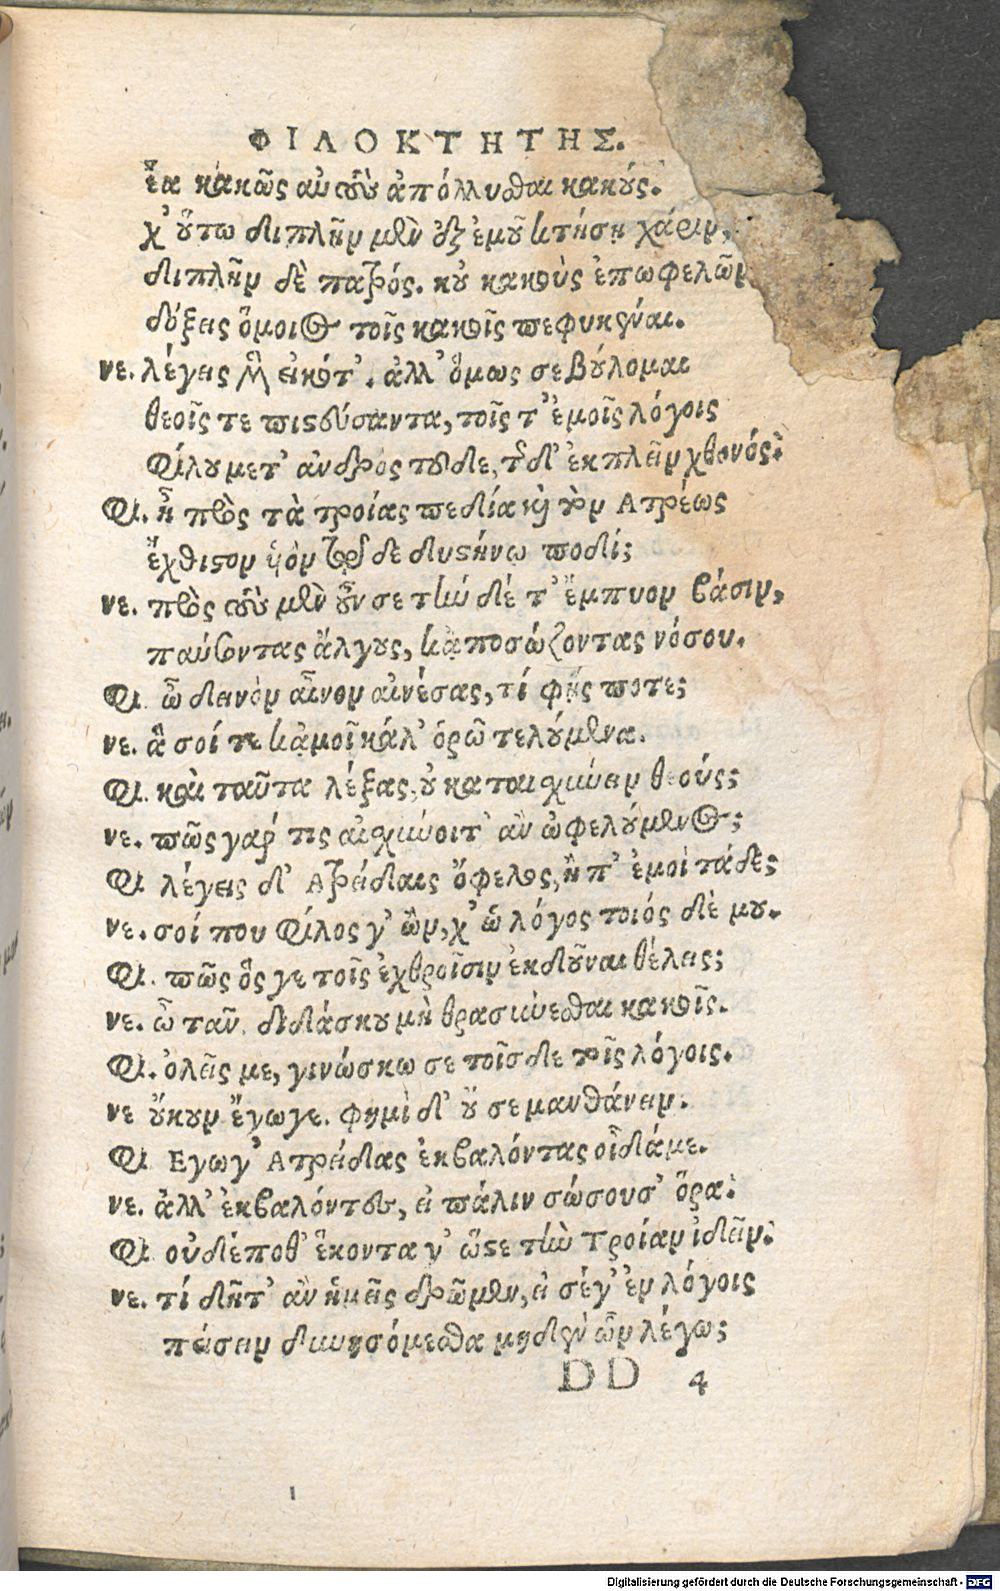 ΦΙΛΟΚΤΗΤΗΣ.
ἔα κακῶς αὐτοὺς ἀπόλλυσθαι κακούς.
χ' οὕτω διπλῆν μὲν ἐξ ἐμοῦ κτήσῃ χάριν,
διπλῆν δὲ πατρός. κοὐ κακοὺς ἐπωφελῶν
δόξεις ὅμοιος τοῖς κακοῖς πεφυκέναι.
νε. λέγεις μὲν εἰκότ'. ἀλλ' ὅμως σε βούλομαι
θεοῖς τε πιστεύσαντα, τοῖς τ' ἐμοῖς λόγοις
φίλου μετ' ἀνδρὸς τοῦδε, τῆσδ' ἐκπλεῖν χθονός.
φι. ἦ πρὸς τὰ τροίας πεδία καὶ τὸν Ατρέως
ἔχθιστον υἱὸν τῷδε δυστήνῳ ποδί;
νε. πρὸς τοὺς μὲν οὖν σε τήνδε τ' ἔμπυον βάσιν,
παύσοντας ἄλγους, κἀποσώζοντας νόσου.
φι. ὦ δεινὸν αἶνον αἰνέσας, τί φῄς ποτε;
νε. ἃ σοί τε κἀμοὶ κάλ' ὁρῶ τελούμενα.
φι. καὶ ταῦτα λέξας, οὐ καταισχύνειν θεούς;
νε. πῶς γάρ τις αἰσχύνοιτ' ἂν ὠφελούμενος;
φι λέγεις δ' Ατρείδαις ὄφελος, ἢ π' ἐμοὶ τάδε;
νε. σοί που φίλος γ' ὢν, χ' ὡ λόγος τοιός δέ μου.
φι. πῶς ὅς γε τοῖς ἐχθροῖσιν ἐκδοῦναι θέλεις;
νε. ὦ ταῦν. διδάσκου μὴ θρασύνεσθαι κακοῖς.
φι. ὀλεῖς με, γινώσκω σε τοῖσδε τοῖς λόγοις.
νε οὔκουν ἔγωγε. φημὶ δ' οὔ σε μανθάνειν.
φι Εγωγ' Ατρείδας ἐκβαλόντας οἶδά με.
νε. ἀλλ' ἐκβαλόντες, εἰ πάλιν σώσουσ' ὅρα.
φι οὐδέποθ' ἕκοντα γ' ὥστε τὴν Τροίαν ἰδεῖν.
νε. τί δῆτ' ἂν ἡμεῖς δρῶμεν, εἰ σέ γ' ἐν λόγοις
πείσειν δυνησόμεσθα μηδὲν ὧν λέγω;
DD 4
Digitalisierung gefördert durch die Deutsche Forschungsgemeinschaft - DFG